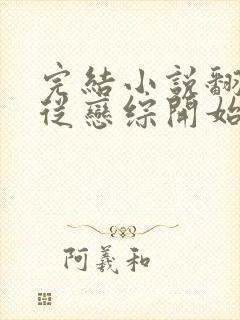 完結小說翻
從戀綜開始
阿羲和